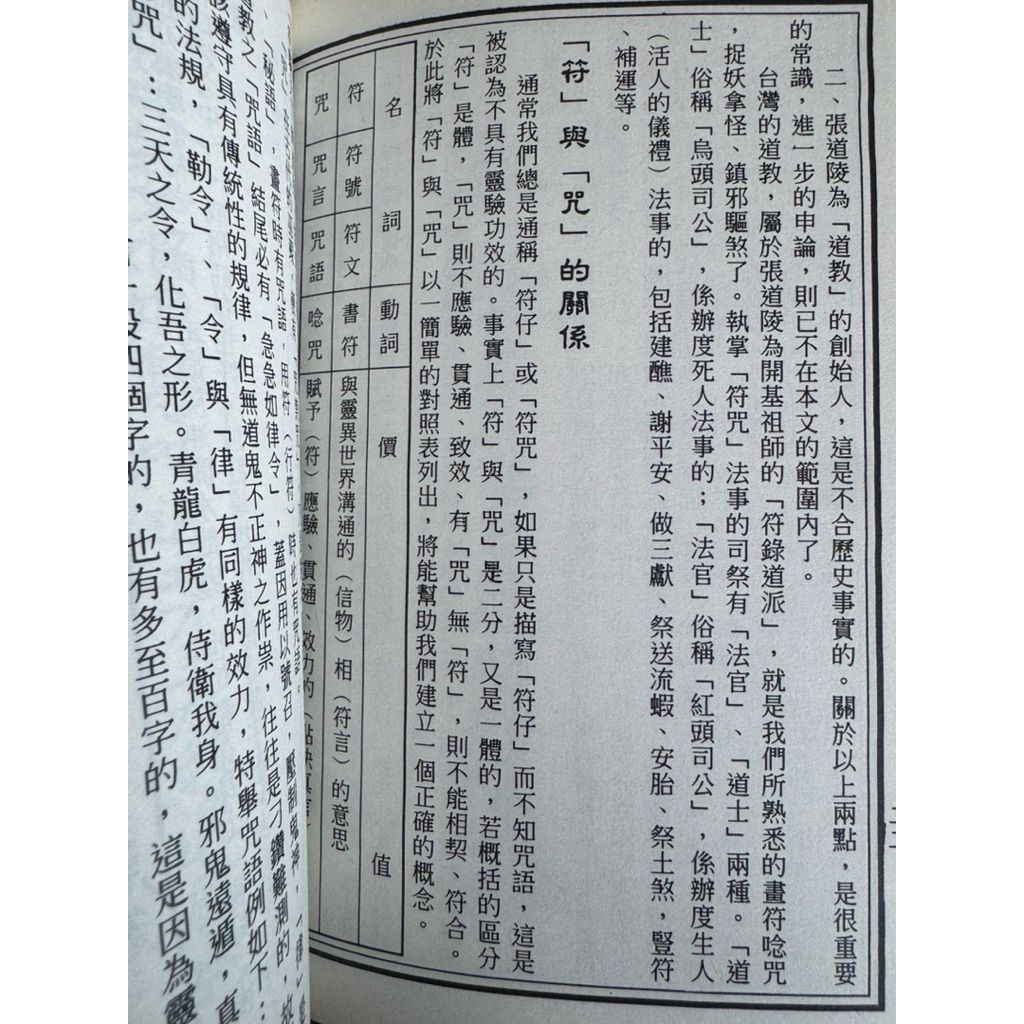 二、張道陵為「道教」的創始人，這是不合歷史事實的。關於以上兩點，是很重要
的常識，進一步的申論，則已不在本文的範圍內了。
台灣的道教，屬於張道陵為開基祖師的「符錄道派」，就是我們所熟悉的畫符唸咒
，捉妖拿怪、鎮邪驅煞了。執掌「符咒」法事的司祭有「法官」、「道士」兩種。「道
士」俗稱「烏頭司公」，係辦度死人法事的；「法官」俗稱「紅頭司公」，係辦度生人
（活人的儀禮）法事的，包括建醮、謝平安、做三獻、祭送流蝦、安胎、祭土煞，豎符
、補運等。
「符」與「咒」的關係
通常我們總是通稱「符仔」或「符咒」，如果只是描寫「符仔」而不知咒語，這是
被認為不具有靈驗功效的。事實上「符」與「咒」是二分，又是一體的，若概括的區分
「符」是體，「咒」則不應驗、貫通、致效、有「咒」無「符」，則不能相契、符合。
於此將「符」與「咒」以一簡單的對照表列出，將能幫助我們建立一個正確的概念。
名詞 動詞 價值
符 符號 符文 書符 與靈異世界溝通的（信物）相（符言）的意思
咒 咒言 咒語 唸咒 賦予（符）應驗、貫通、效力的
「秘語」，畫符時有咒語，用符（行符）時也有咒語。
道教之「咒語」結尾必有「急急如律令」，蓋因用以號召，壓制鬼神，
該遵守具有傳統性的規律，但無道鬼不正神之作祟，往往是刁鑽難測的，
的法規，「勒令」、「令」與「律」有同樣的效力，特舉咒語例如下：
咒」：三天之令，化吾之形。青龍白虎，侍衛我身。邪鬼遠遁，真
四個字的，也有多至百字的，這是因為靈